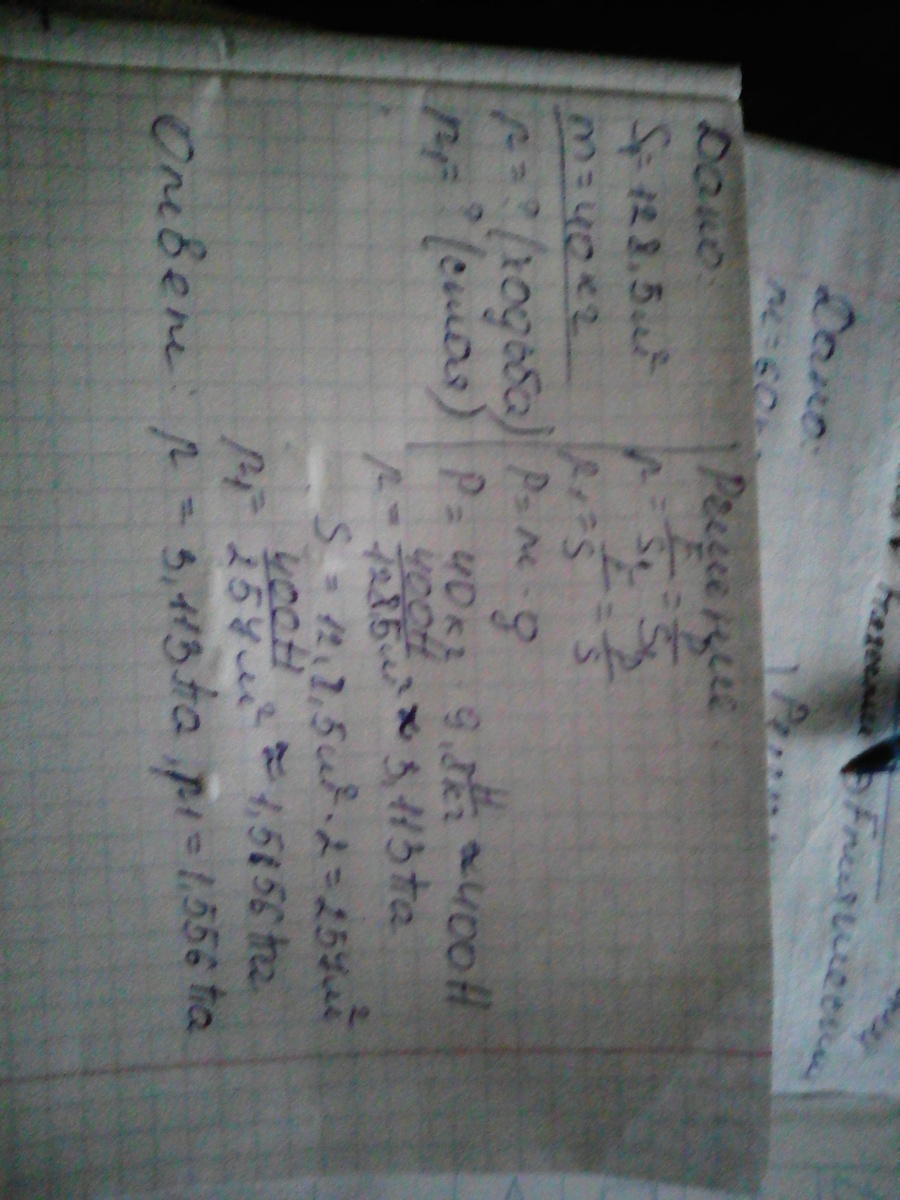 Дано:
S₁ = 128,5 м²
m = 40 кг
p = ? (ходьба)
p₁ = ? (стоя)
Решение:
p = F/S₁ = P/S₁
p₁ = F/S = P/S
P = m · g
P = 40 кг · 9,8 Н/кг ≈ 400 Н
p = 400Н/128,5 м² ≈ 3,113 Па
S = 12,8,5 м² · 2 = 257 м²
p₁ = 400Н/257 м² ≈ 1,556 Па
Ответ: p = 3,113 Па, p₁ = 1,556 Па
Дано: